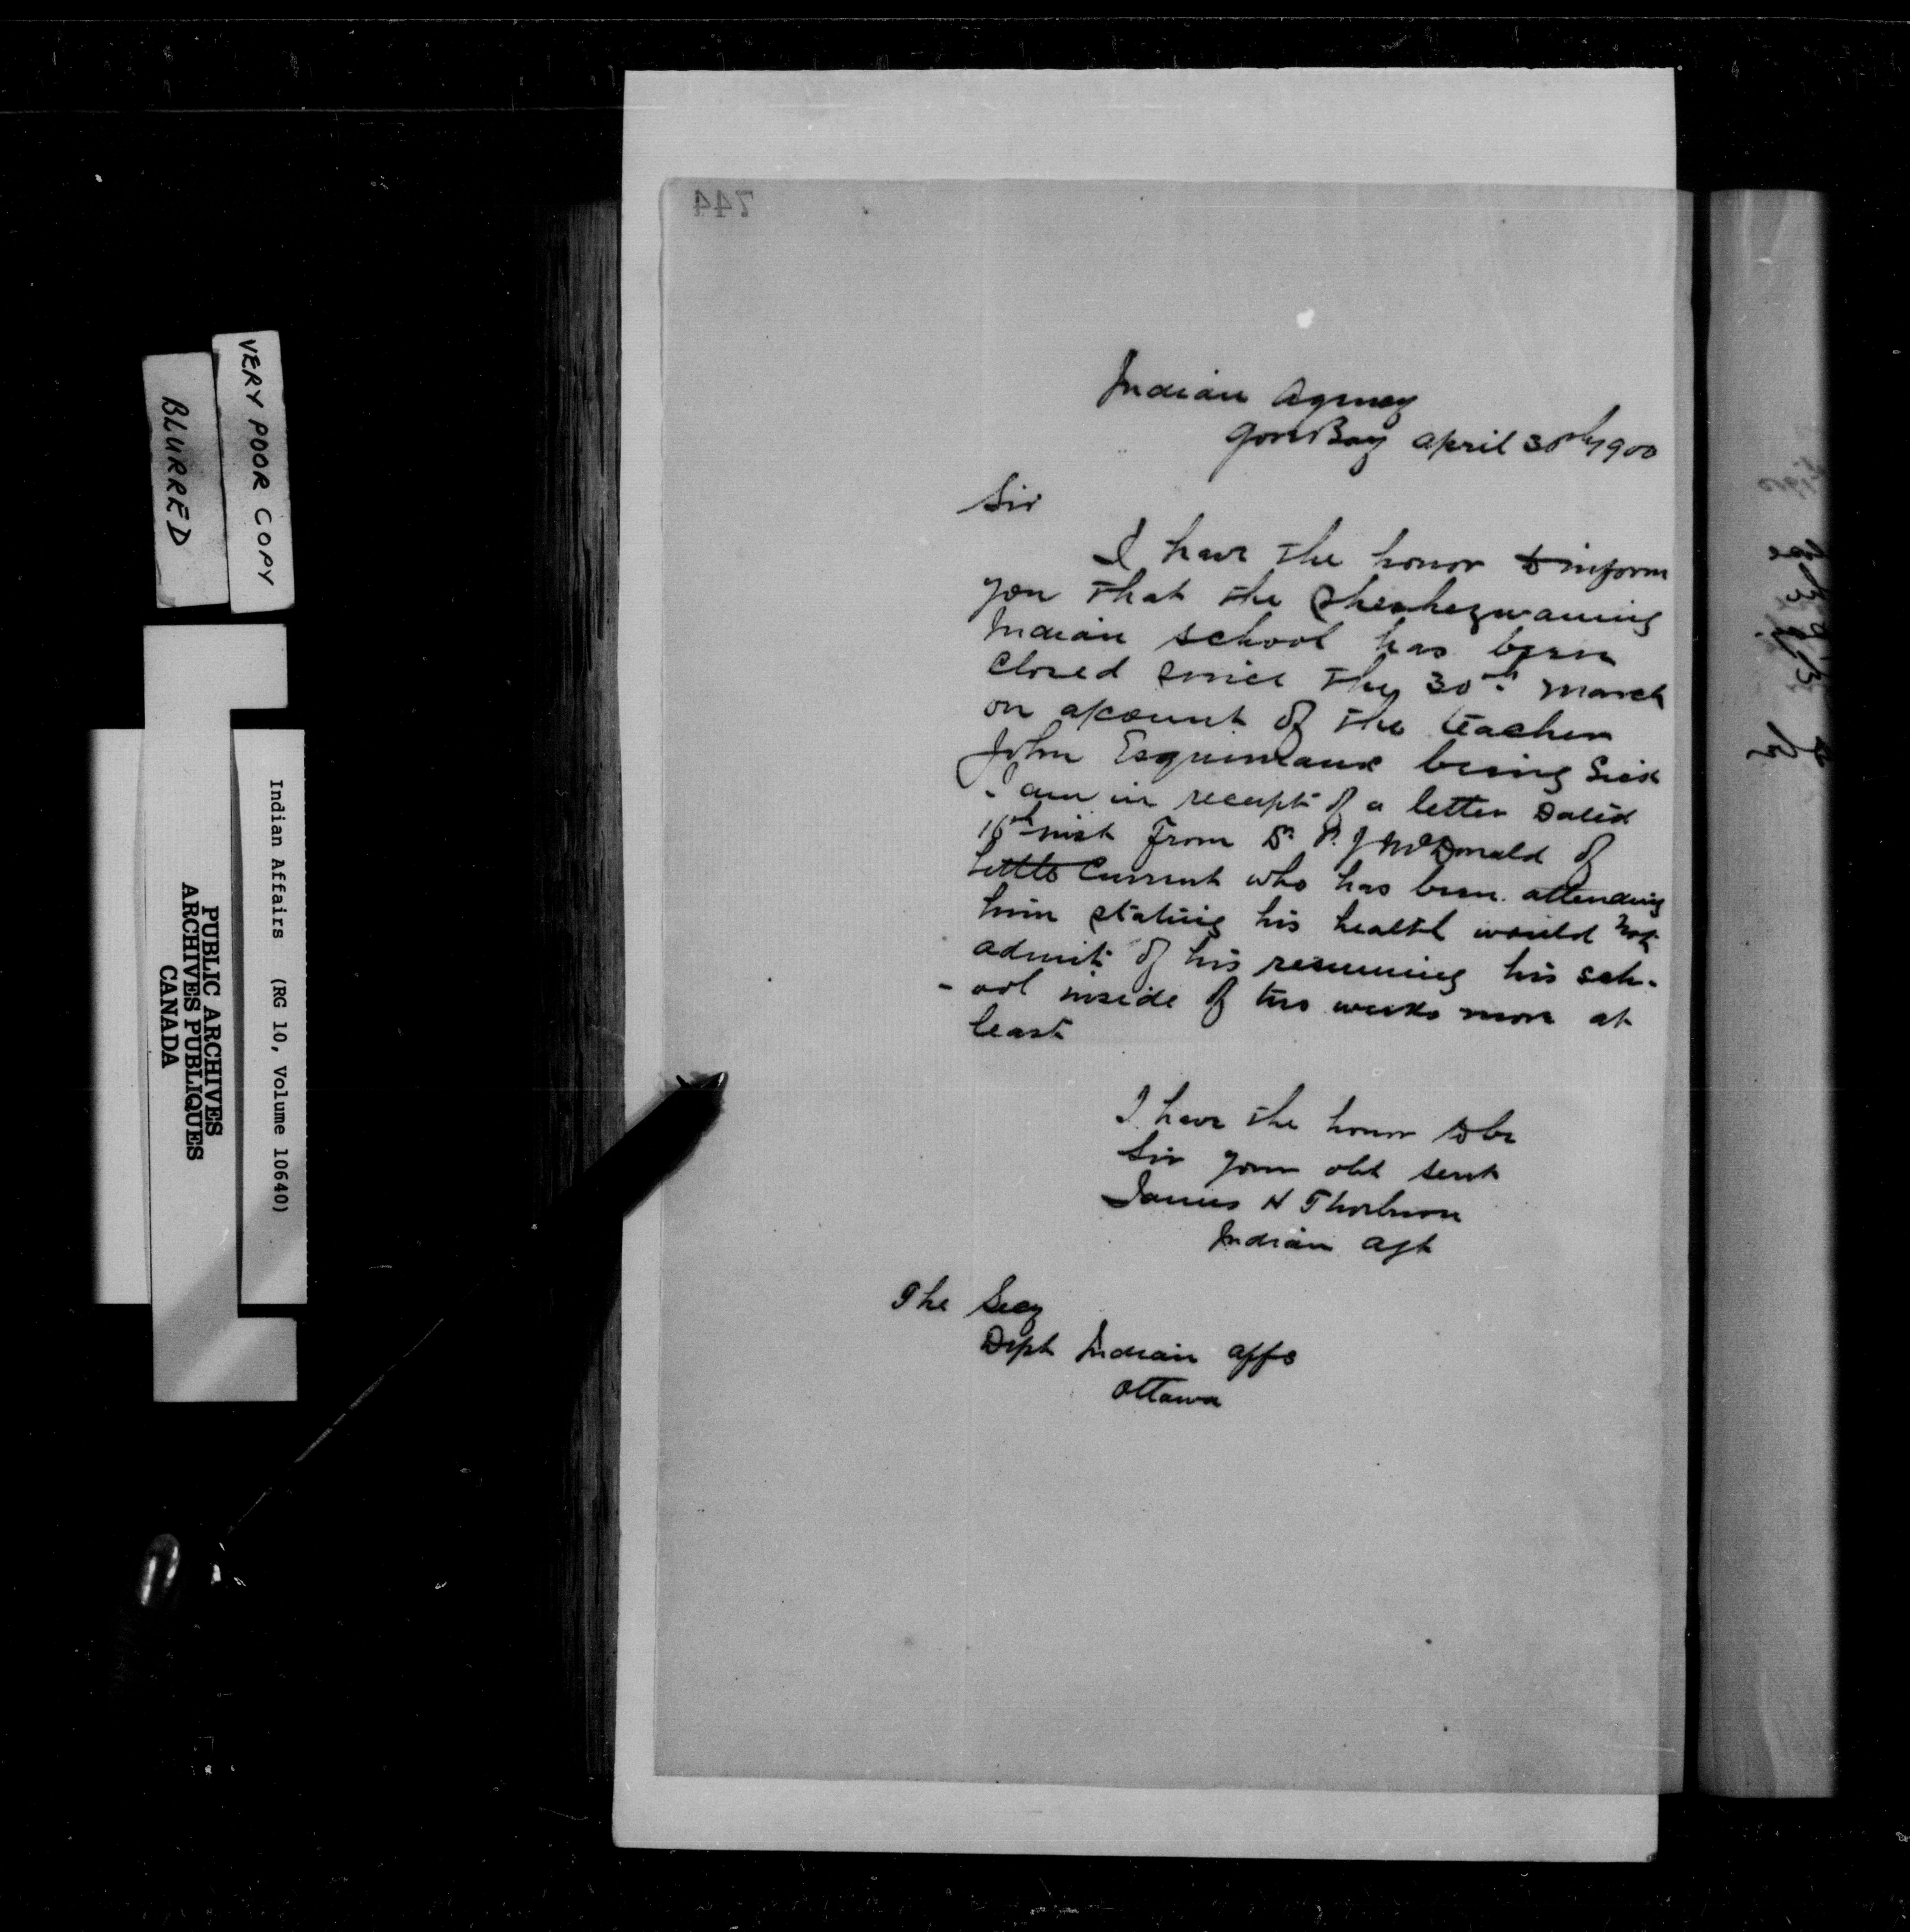 744
Indian Agency
Gore Bay April 30th 1900
Sir
I have the honor to inform
you that the Sheshegwaning
Indian school has been
closed since the 30th March
on account of the teacher
John Esquimaux being Sick
I am in receipt of a letter Dated
inst From Dr P. J McDonald of
Little Current who has been attending
him stating his health would not
admit of his resuming his sch-
-ool inside of two weeks more at
least
I have the honor to be
Sir your obt servt
James H Thorburn
Indian Agt
The Secy
Dept Indian Affs
Ottawa
VERY POOR COPY
BLURRED
Indian Affairs (RG 10, Volume 10640)
PUBLIC ARCHIVES
ARCHIVES PUBLIQUES
CANADA